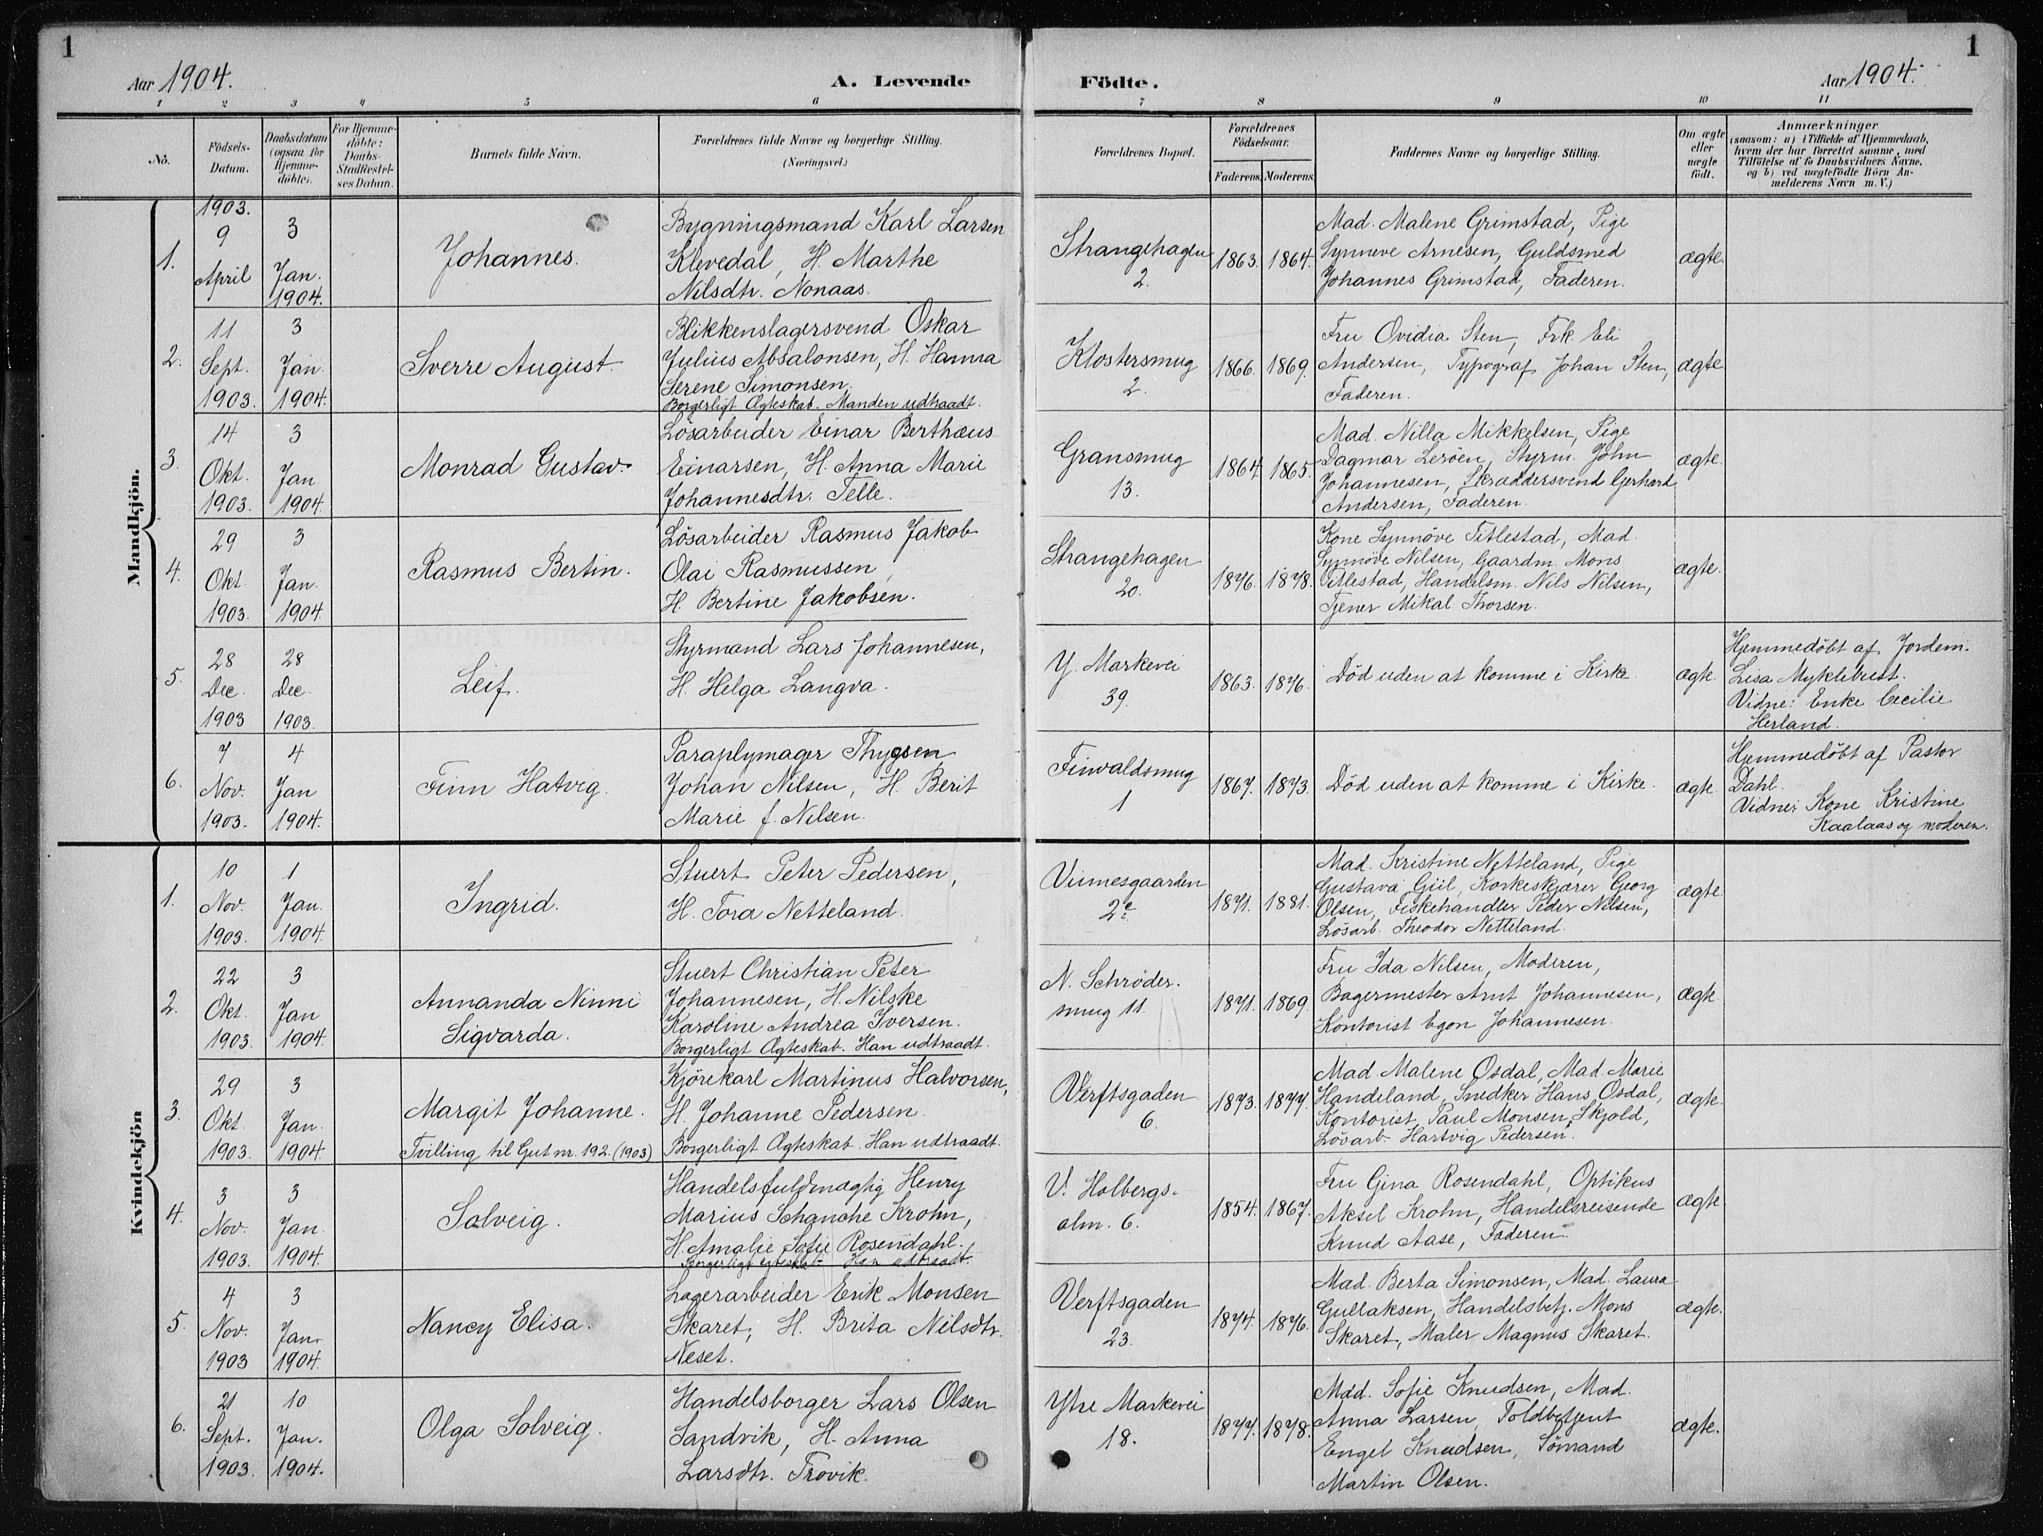 1
1
Aar 1904.
A. Levende
Födte.
Aar 1904.
1 2 3 4 5 6 7 8 9 10 11
No.
Födsels-
Datum.
Daabsdatum
(ogsaa for
Hjemme-
döbte).
For Hjemme-
döbte:
Daabs-
Stadfæstel-
ses Datum.
Barnets fulde Navn.
Forældrenes fulde Navne og borgerlige Stilling.
(Næringsvei.)
Forældrenes Bopæl.
Forældrenes
Födselsaar.
Faderens. Moderens.
Faddernes Navne og borgerlige Stilling.
Om ægte
eller
uægte
födt.
Anmærkninger
(saasom: a) i Tilfælde af Hjemmedaab,
hvem der har forrettet samme, med
Tilföielse af to Daabsvidners Navne.
og b) ved uægtefödte Börn An-
melderens Navn m. V.)
Mandkjön.
1.
1903.
9
April
3
Jan.
1904.
Johannes.
Bygningsmand Karl Larsen
Klevedal, H. Marthe
Nilsdtr. Nonaas.
Strangehagen
2.
1863. 1864.
Mad. Malene Grimstad, Pige
Synneve Arnesen, Guldsmed
Johannes Grimstad, Faderen.
ægte.
2.
11
Sept.
1903.
3
Jan.
1904.
Sverre August.
Blikkenslagersvend Oskar
Julius Absalonsen, H. Hanna
Serene Simonsen.
Borgerligt Ægteskab. Manden udtraadt.
Klostersmug
2.
1866. 1869.
Fru Ovidia Sten, Frk. Eli
Andersen, Typograf Johan Sten,
Faderen.
ægte
3.
14
Okt.
1903.
3
Jan
1904.
Monrad Gustav.
Lösarbeider Einar Berthæus
Einarsen, H. Anna Marie
Johannesdtr. Telle.
Gransmug
13.
1864. 1865.
Mad. Nilla Mikkelsen, Pige
Dagmar Lerøen, Styrm. John
Johannesen, Skræddersvend Gerhard
Andersen, Faderen.
ægte.
4.
29
Okt
1903.
3
Jan.
1904.
Rasmus Bertin.
Lösarbeider Rasmus Jakob
Olai Rasmussen,
H. Bertine Jakobsen.
Strangehagen
20.
1876. 1878.
Kone Synnöve Titlestad, Mad.
Synnöve Nilsen, Gaardm. Mons
Titlestad, Handelsm. Nils Nilsen,
Tjener Mikal Thorsen.
ægte.
5.
28
Dec.
1903
28
Dec.
1903.
Leif.
Styrmand Lars Johannesen,
H. Helga Langva.
Y. Markevei
39.
1863. 1876.
Död uden at komme i Kirke.
ægte.
Hjemmedöbt af Jordem.
Lisa Myklebust.
Vidne: Enke Cecilie
Herland.
6.
7
Nov.
1903.
4
Jan
1904.
Finn Hatvig.
Paraplymager Thygsen
Johan Nilsen, H. Berit
Marie f. Nilsen.
Finvaldsmug
1
1867. 1873.
Död uden at komme i Kirke.
ægte.
Hjemmedöbt af Pastor
Dahl.
Vidner Kone Kristine
Kaalaas og moderen.
Kvindekjön
1.
10
Nov.
1903.
1
Jan.
1904.
Ingrid.
Stuert Peter Pedersen,
H. Tora Netteland.
Vinnesgaarden
2c
1871. 1881.
Mad. Kristine Netteland, Pige
Gustava Giil, Korkeskjærer Georg
Olsen, Fiskehandler Peder Nilsen,
Lösarb. Theodor Netteland.
ægte.
2.
22
Okt.
1903.
3
Jan
1904.
Annanda Ninni
Sigvarda.
Stuert Christian Peter
Johannesen, H. Nilske
Karoline Andrea Iversen.
Borgerligt Ægteskab. Han udtraadt.
N. Schrøder-
smug 11.
1871. 1869.
Fru Ida Nilsen, Moderen,
Bagermester Arnt Johannesen,
Kontorist Egon Johannesen.
ægte
3.
29
Okt.
1903.
3
Jan.
1904.
Margit Johanne.
Tvilling til Gut nr. 192. (1903)
Kjörekarl Martinus Halvorsen,
H. Johanne Pedersen.
Borgerligt Ægteskab. Han udtraadt.
Verftsgaden
6.
1873. 1877.
Mad. Malene Osdal, Mad. Marie
Handeland, Snedker Hans Osdal,
Kontorist Paul Monsen Skjold,
Lösarb. Hartvig Pedersen.
ægte.
4.
3
Nov.
1903.
3
Jan.
1904.
Solveig.
Handelsfuldmægtig Henry
Marius Schanche Krohn,
H. Amalie Sofie Rosendahl.
Borgerligt Ægteskab. Han udtraadt.
V. Holbergs-
alm. 6.
1854. 1867.
Fru Gina Rosendahl, Optikus
Aksel Krohn, Handelsreisende
Knud Aase, Faderen.
ægte.
5.
4
Nov.
1903
3
Jan.
1904.
Nancy Elisa.
Lagerarbeider Erik Monsen
Skaret, H. Brita Nilsdtr.
Neset.
Verftsgaden
23.
1874. 1876.
Mad. Berta Simonsen, Mad. Laura
Gullaksen, Handelsbetj. Mons
Skaret, Maler Magnus Skaret.
ægte.
6.
21
Sept.
1903.
10
Jan.
1904.
Olga Solveig.
Handelsborger Lars Olsen
Sandvik, H. Anna
Larsdtr. Trovik.
Ytre Markevei
18.
1877. 1878.
Mad. Sofie Knudsen, Mad.
Anna Larsen, Toldbetjent
Engel Knudsen, Sömand
Martin Olsen.
ægte.